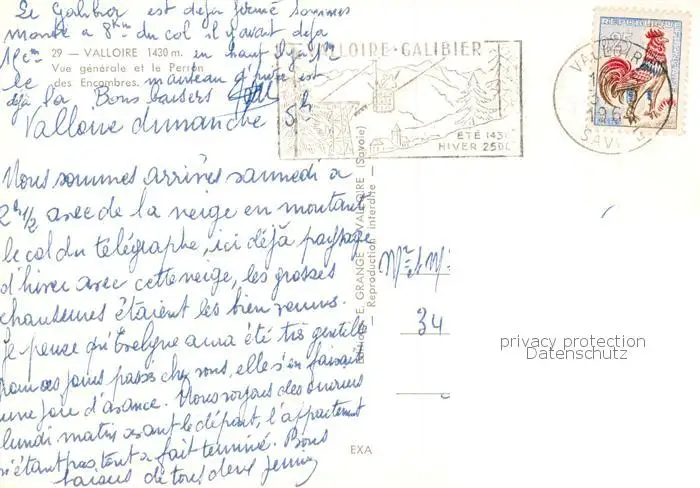 Le Galibier est déjà fermé sommes
monté a 8Km du col il y avait déja
1 cm en haut il y a 1m
29 – VALLOIRE 1430 m.
Vue générale et le Perron
des Encombres.
le manteau d' est
déja la Bons baisers
Valloire dimanche 5h
Nous sommes arrivés samedi a
2h 1/2 avec de la neige en montant
le col du télégraphe, ici déjà paysage
d'hiver avec cette neige, les grosses
chaussures étaient les bien venues.
Je pense qu'Evelyne aura été très gentille
pour ces jours passés chez vous, elle s'en faisait
une joie d'avance. Nous voyons des ouvriers
lundi matin avant le départ, l'appartement
n'étant pas tout a fait terminé. Bons
baisers de tous deux
VALLOIRE-GALIBIER
ÉTÉ 1430
HIVER 2500
VALLOIRE
SAVOIE
E. GRANGE VALLOIRE (Savoie)
Reproduction interdite
Mr et M
34
EXA
privacy protection
Datenschutz